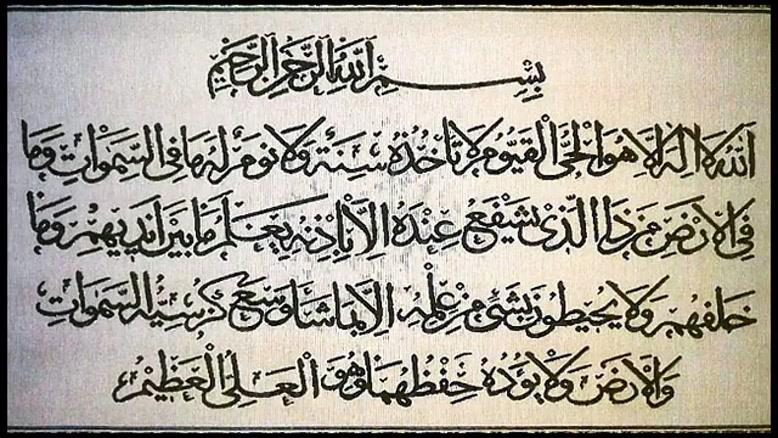 بِسْمِ اللَّهِ الرَّحْمَنِ الرَّحِيمِ
اَللّٰهُ لَا اِلٰهَ اِلَّا هُوَ الْحَىُّ الْقَيُّومُ لَا تَأْخُذُهُ سِنَةٌ وَلَا نَوْمٌ لَهُ مَا فِى السَّمٰوَاتِ وَمَا
فِى الْاَرْضِ مَنْ ذَا الَّذِى يَشْفَعُ عِنْدَهُ اِلَّا بِاِذْنِهِ يَعْلَمُ مَا بَيْنَ اَيْدِيهِمْ وَمَا
خَلْفَهُمْ وَلَا يُحِيطُونَ بِشَىْءٍ مِنْ عِلْمِهِ اِلَّا بِمَا شَاءَ وَسِعَ كُرْسِيُّهُ السَّمٰوَاتِ
وَالْاَرْضَ وَلَا يَؤُدُهُ حِفْظُهُمَا وَهُوَ الْعَلِىُّ الْعَظِيمُ